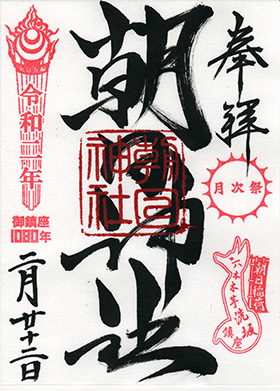 奉拝
月次祭
朝日稲荷
六本木芋洗坂
鎮座
朝日神社
朝日神社
令和二年
御鎮座
1080年
二月廿二日